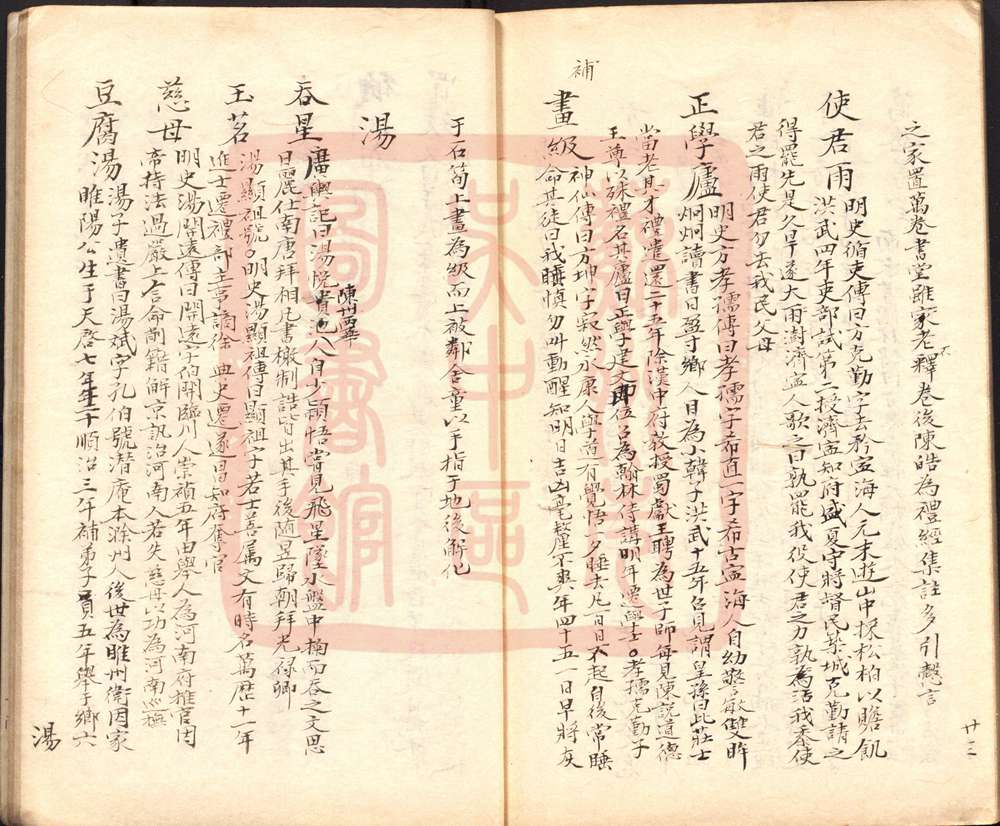 之家置萬卷書堂雖家老不釋卷後陳皓為禮經集註多引愨言
使君雨 明史循吏傳曰方克勤字去矜寧海人元末遊山中採松柏以贍飢
洪武四年吏部試第二授濟寧知府盛夏守將督民築城克勤請之
得罷先是久旱遂大雨澍濟寧人歌之曰孰罷我役使君之力孰為活我黍使
君之雨使君勿去我民父母
正學廬 明史方孝孺傳曰孝孺字希直一字希古寧海人自幼警敏雙眸
炯炯讀書日盈寸鄉人目為小韓子洪武十五年召見謂皇孫曰此莊士
當老其才禮遣還二十五年除漢中府教授蜀獻王聘為世子師每見陳說道德
王尊以殊禮名其廬曰正學建文即位召為翰林侍講明年遷學士。孝孺克勤子
補
畫級 神仙傳曰方坤字寂然永康人學道有覺悟一夕睡去凡百日不起自後常睡
命其徒曰我睡慎勿叫動醒知明日吉凶毫釐不爽年四十五一日早將灰
于石筍上畫為級而上被鄰舍童以手指于地後解化
湯
吞星 廣輿記曰湯悅陳州西華貴池人自少穎悟嘗見飛星墜水盤中掬而吞之文思
日麗仕南唐拜相凡書檄制誥皆出其手後隨昱歸朝拜光祿卿
玉茗 湯顯祖號。明史湯顯祖傳曰顯祖字若士善屬文有時名萬歷十一年
進士遷禮部主事謫徐聞典史遷遂昌知府奪官
慈母 明史湯開遠傳曰開遠字伯開臨川人崇禎五年由舉人為河南府推官因
帝持法過嚴上言命削籍解京訊治河南人若失慈母以功為河南巡撫
豆腐湯 湯子遺書曰湯斌字孔伯號潛庵本滁州人後世為睢州衛因家
睢陽公生于天啓七年年二十順治三年補弟子員五年舉于鄉六
湯
廿二